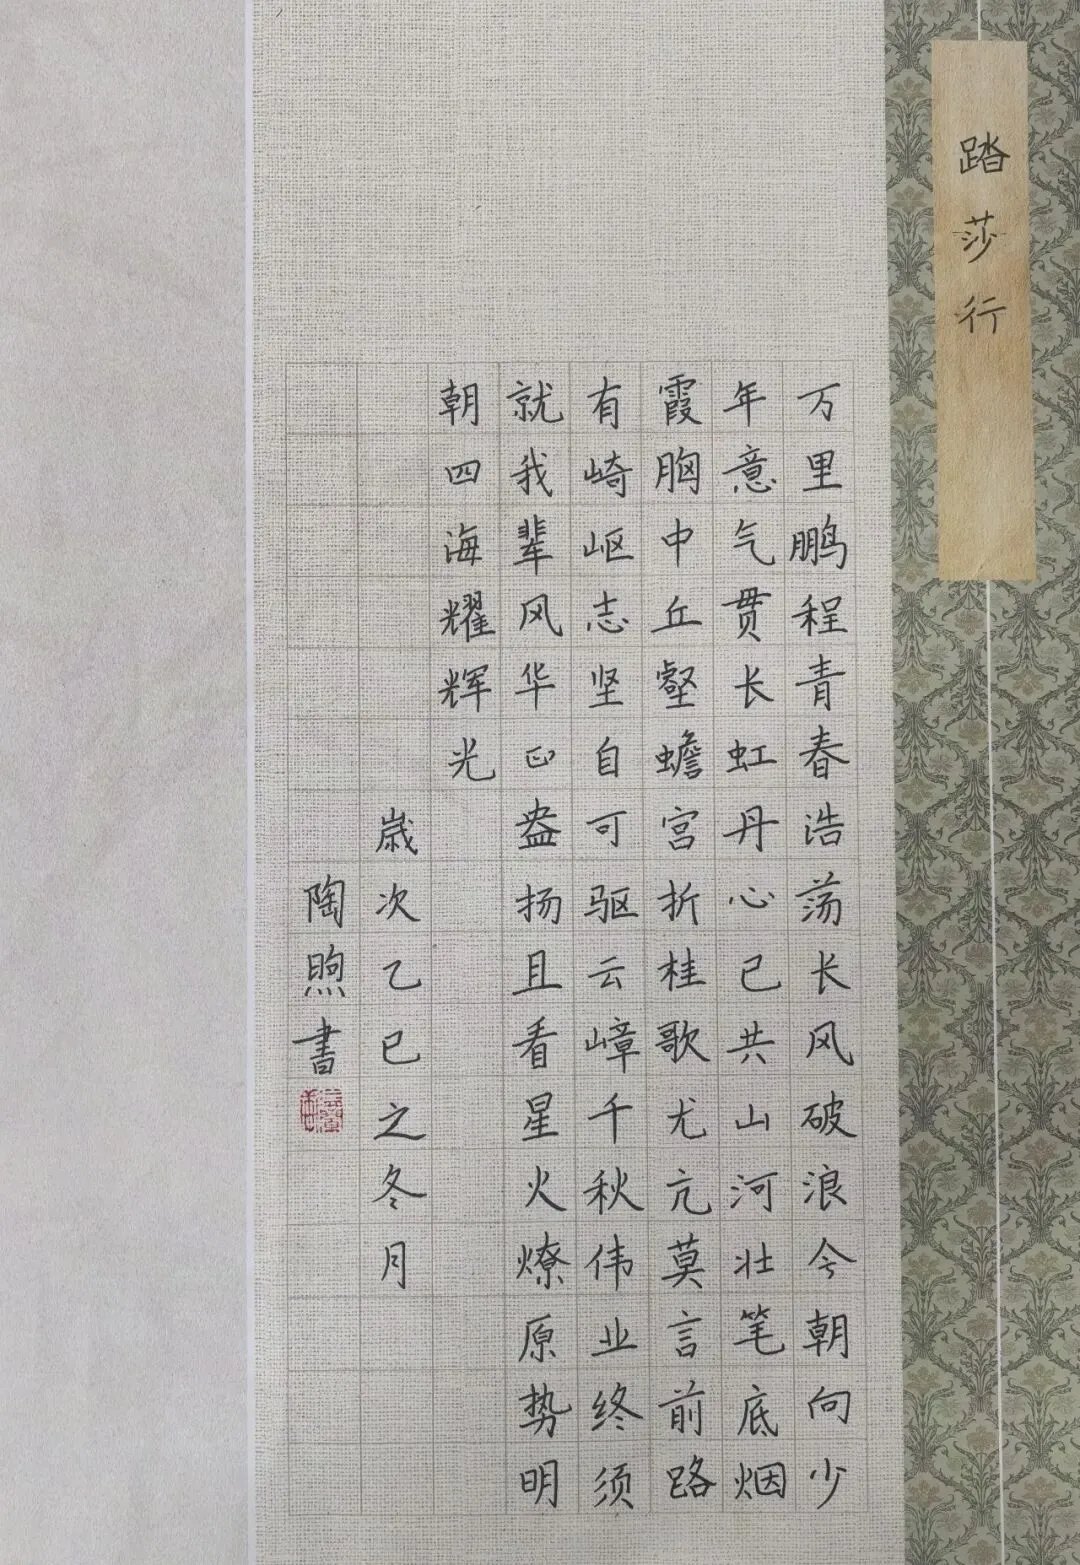 踏莎行
万里鹏程青春浩荡长风破浪今朝向少
年意气贯长虹丹心已共山河壮笔底烟
霞胸中丘壑蟾宫折桂歌尤亢莫言前路
有崎岖志坚自可驱云嶂千秋伟业终须
就我辈风华正盎扬且看星火燎原势明
朝四海耀辉光
歳次乙巳之冬月
陶煦書